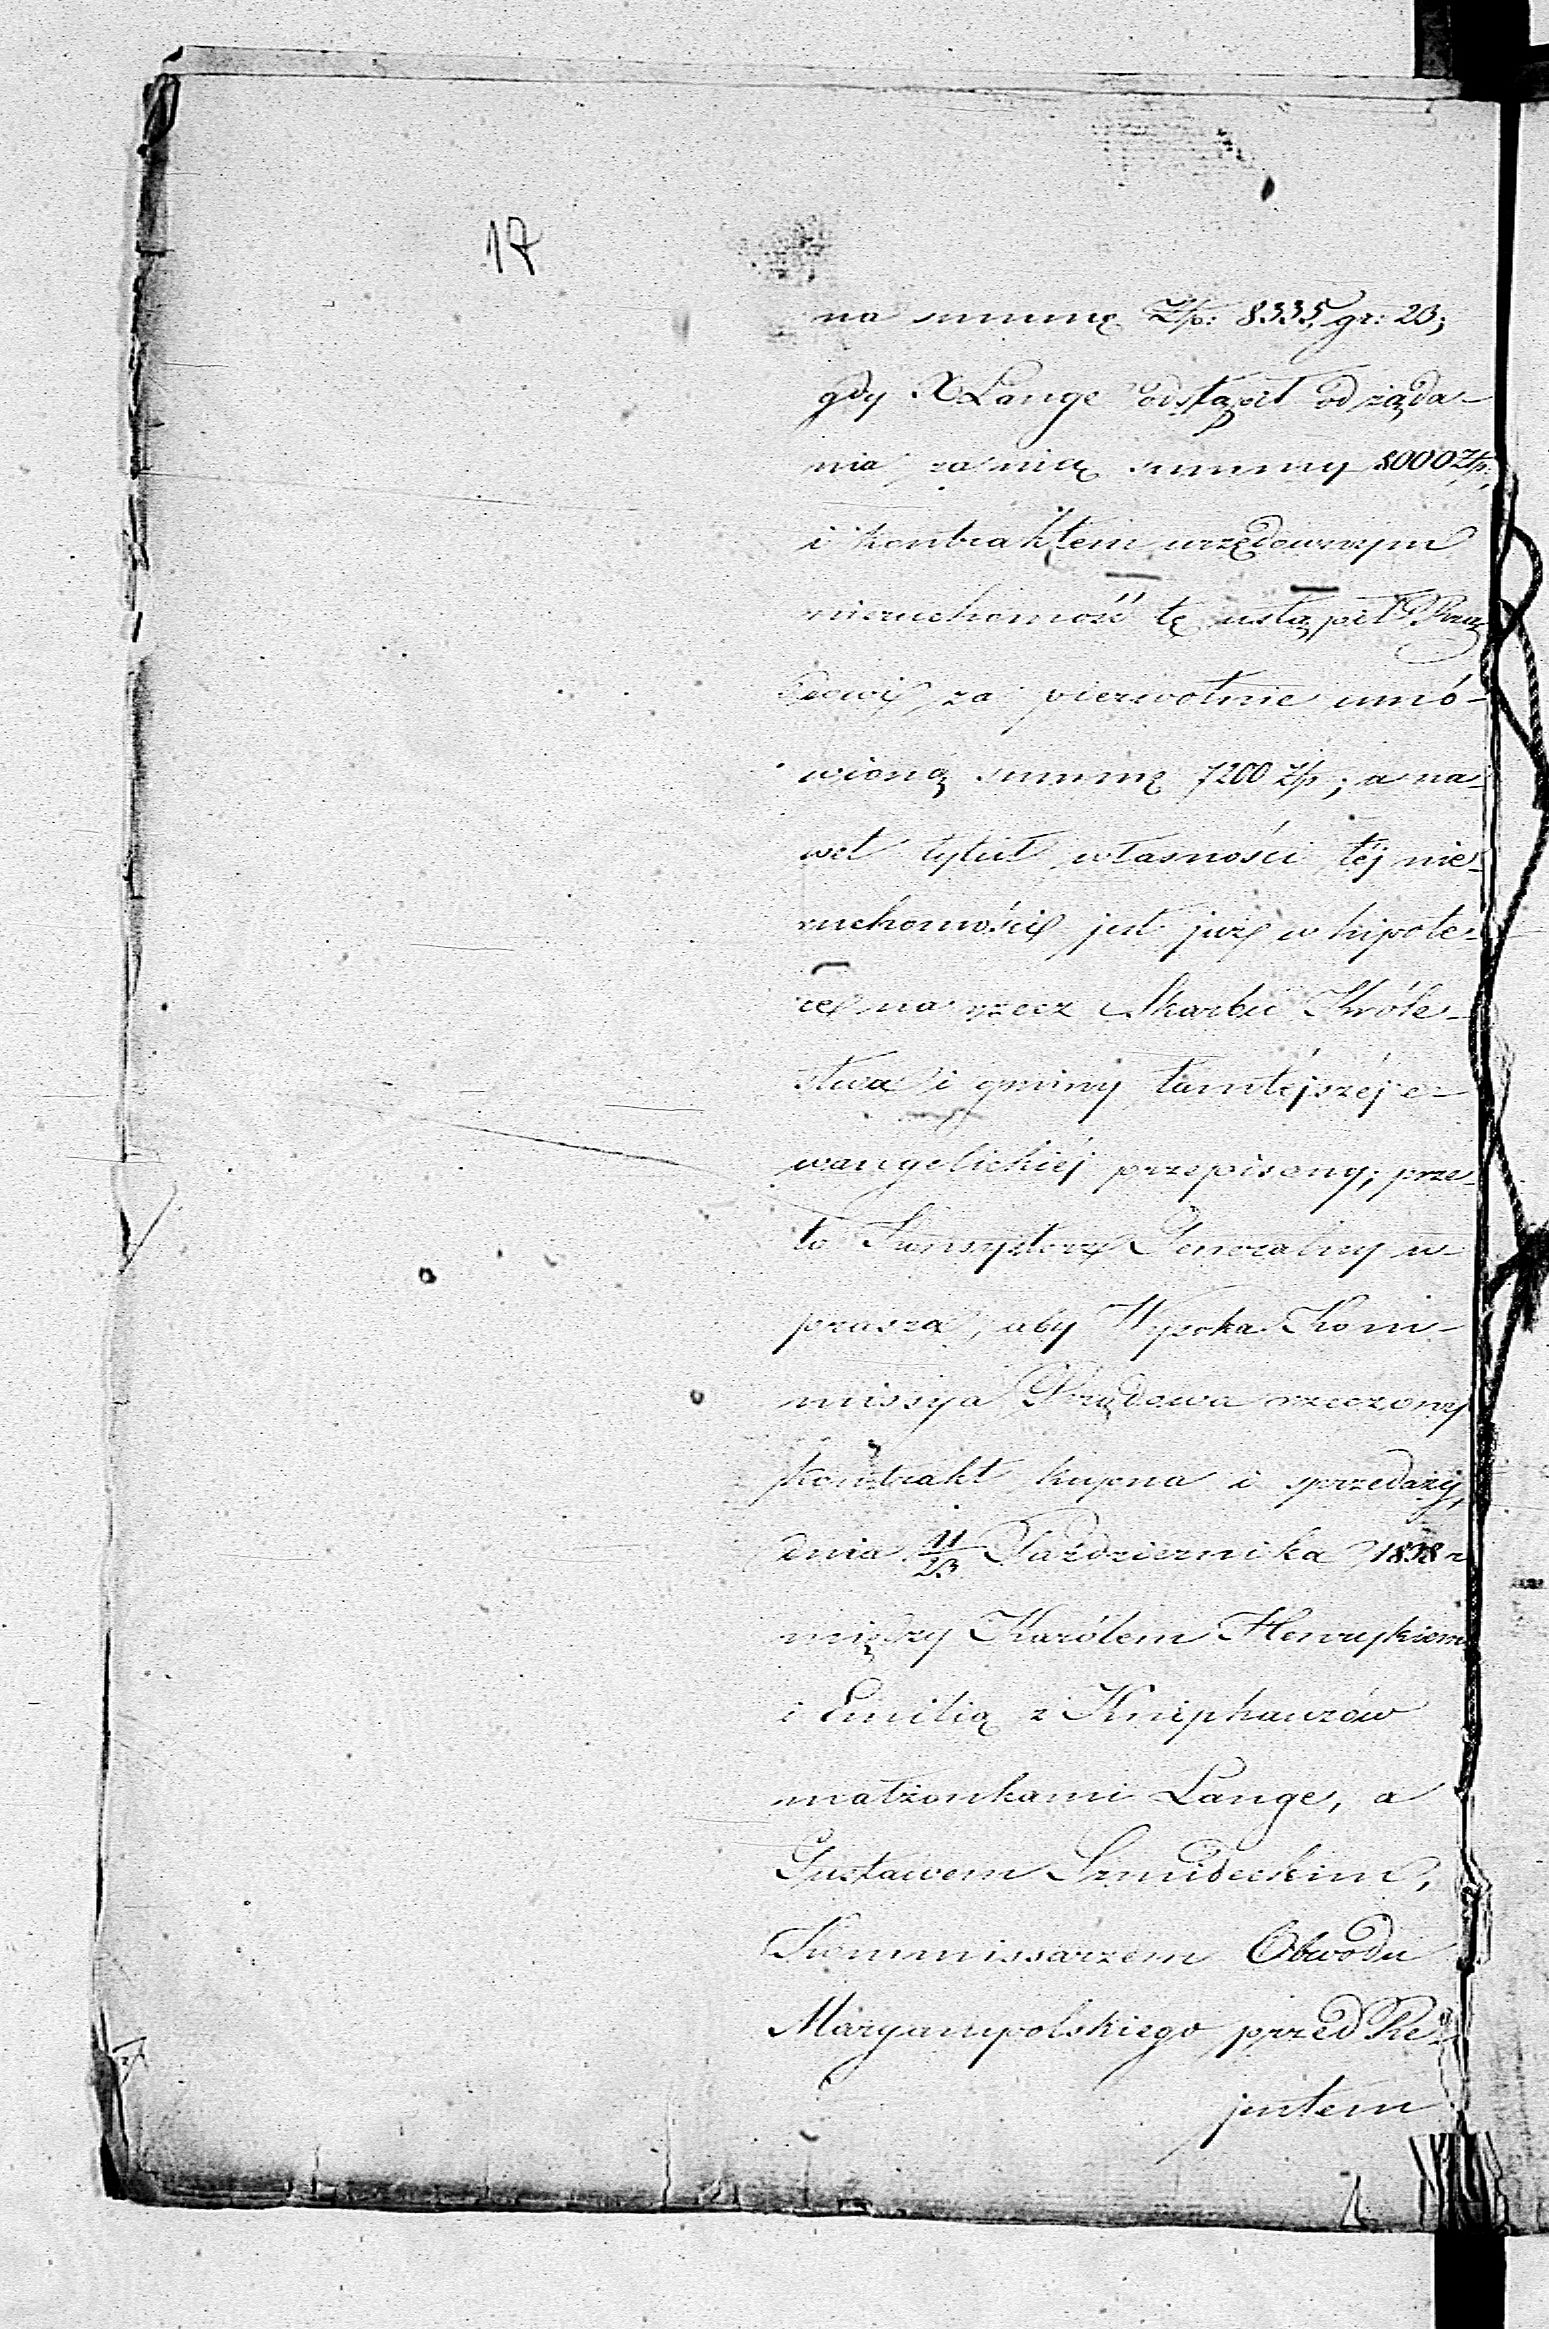 17
na summę Złp: 8335, gr: 23;
gdy X Lange odstąpił od żąda-
nia za nią summy 8000 Złp:,
i kontraktem urzędowym
nieruchomość tę ustąpił Rzą
dowi, za pierwotnie umó-
wioną summę 7200 złp; a na-
wet tytuł własności téj nie-
ruchomości jest już w hipote-
ce na rzecz Skarbu Króle-
stwa i gminy tamtéjszéj e-
wangelickiéj przepisany; prze-
to Konsystorz Generalny u-
prasza, aby Wysoka Kom-
missya Rządowa rzeczony
kontrakt kupna i sprzedaży,
dnia 11/23 Października 1838 r
między Karólem Henrykiem
i Emilią z Kniphauzów
małżonkami Lange, a
Gustawem Szmideckim,
Kommissarzem Obwodu
Maryampolskiego przed Re-
jentem